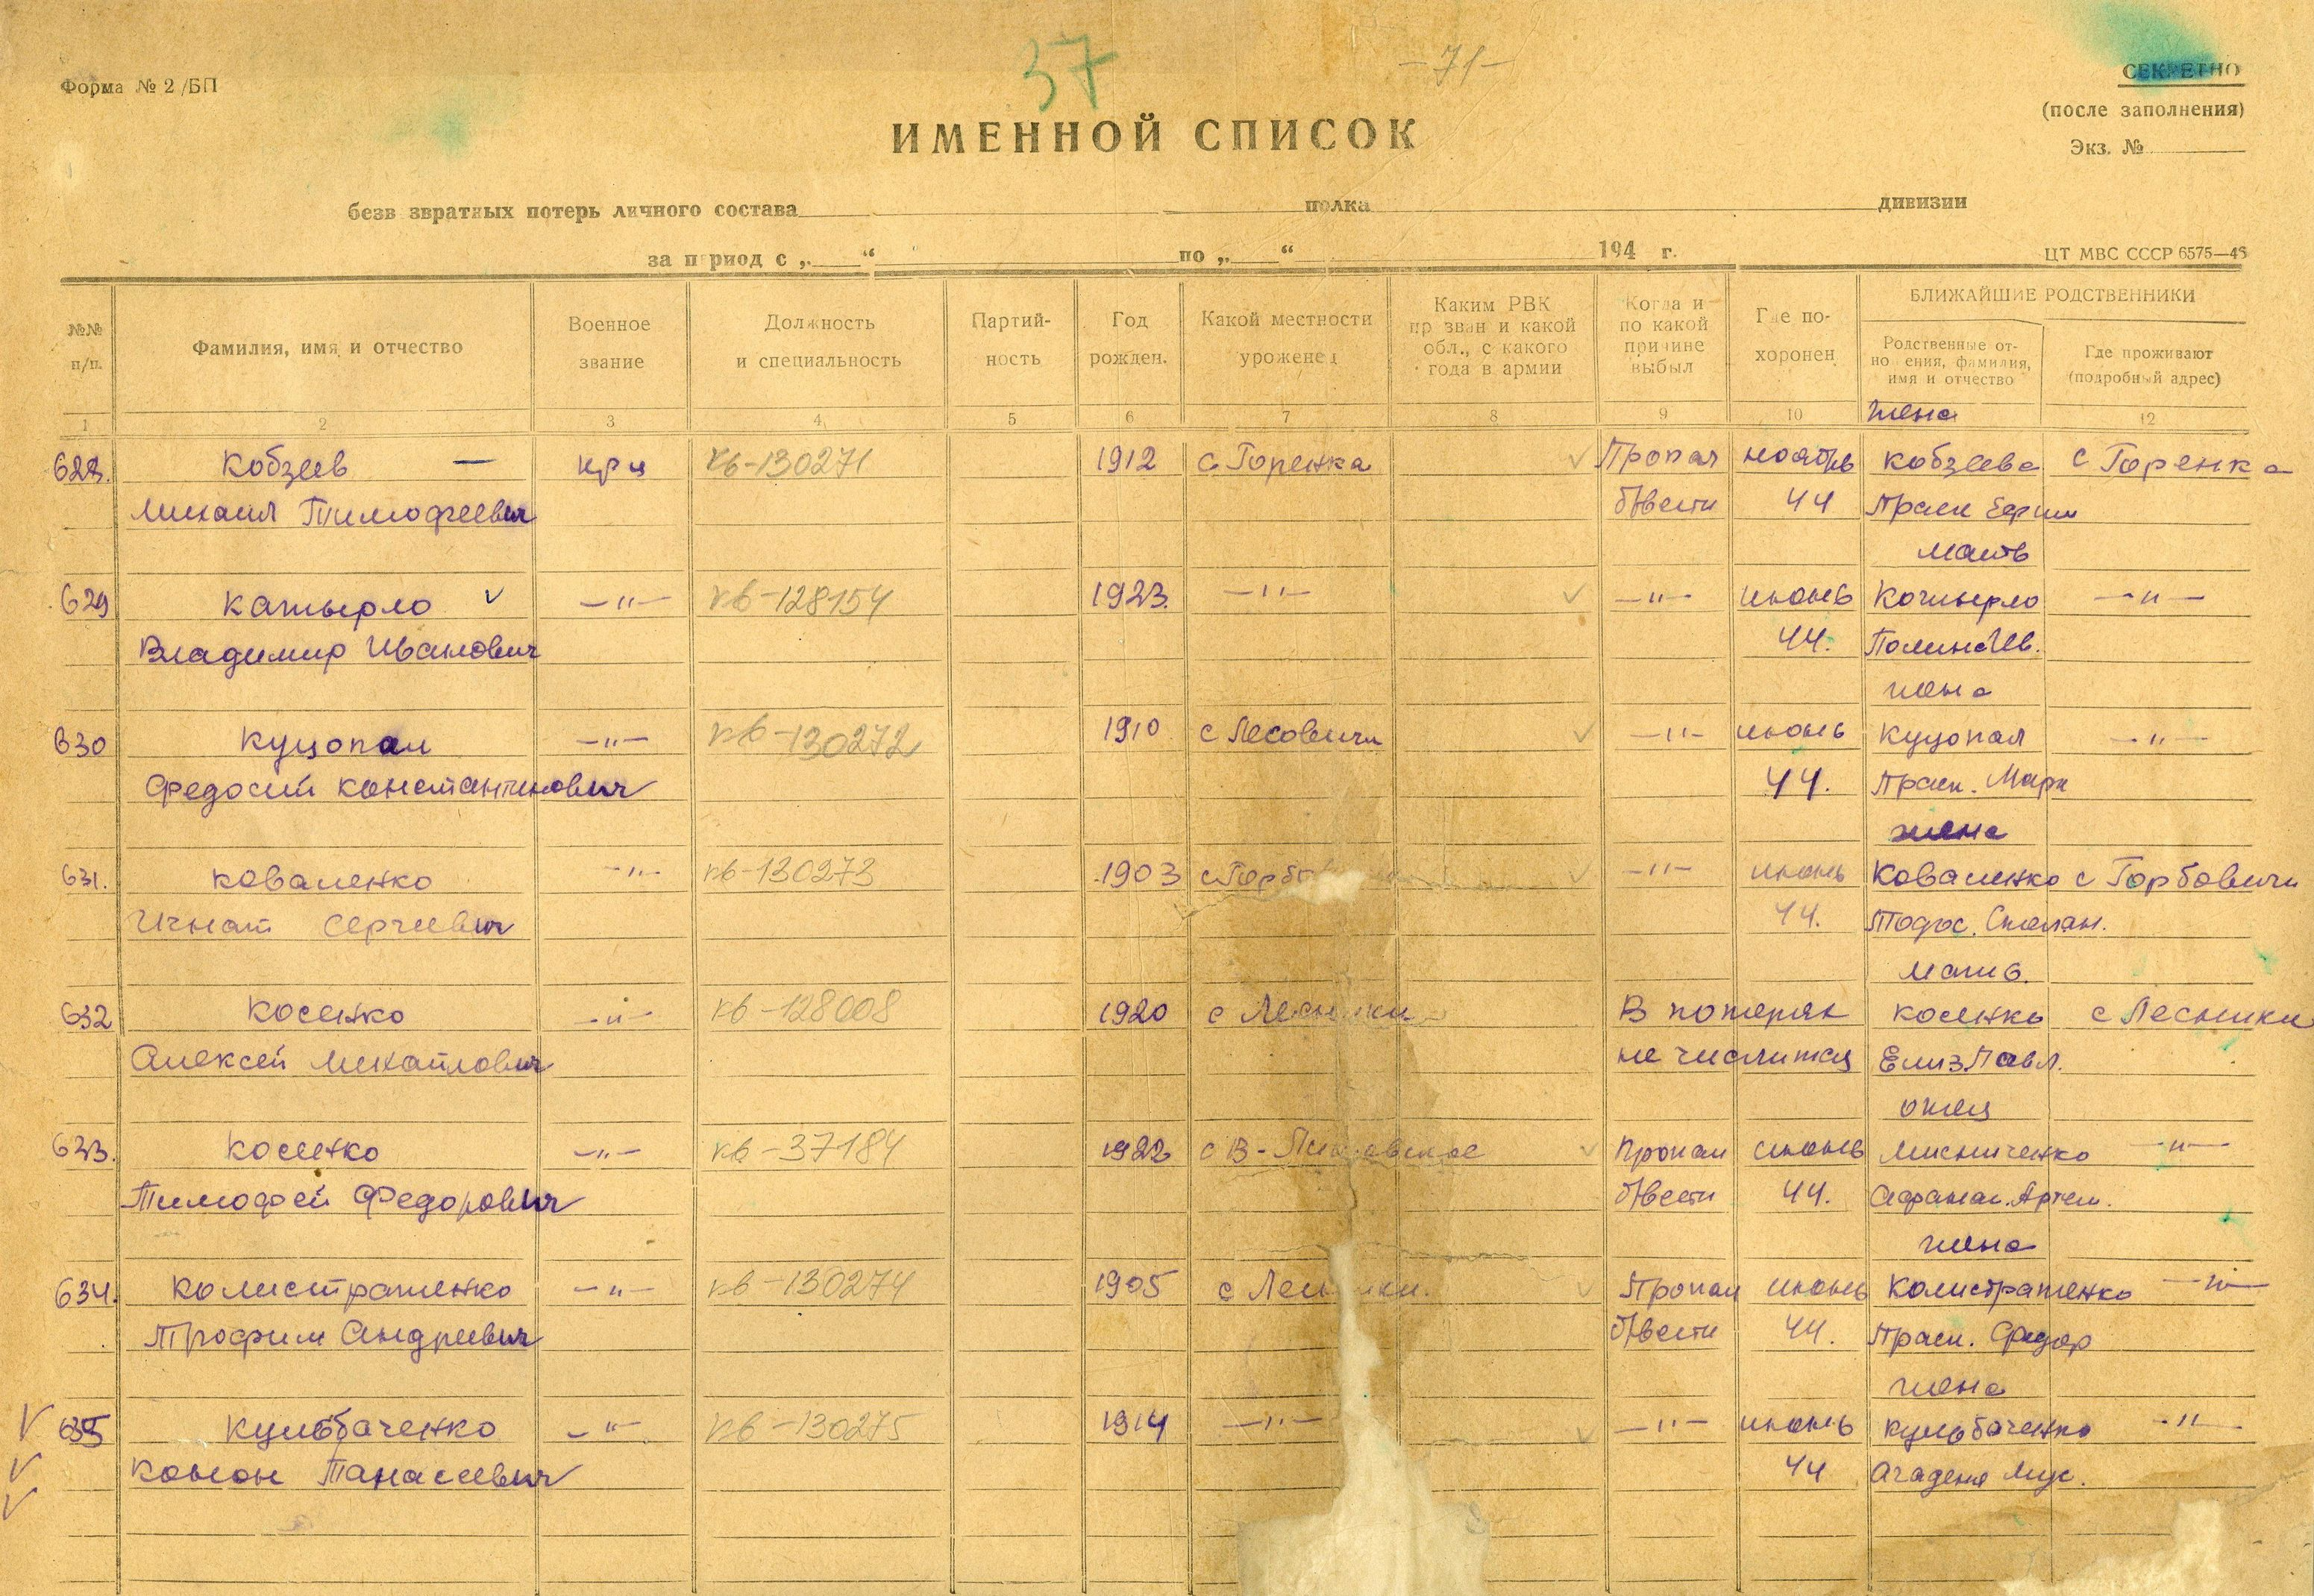 37
-71-
Форма № 2/БП
СЕКРЕТНО
(после заполнения)
Экз. №
ИМЕННОЙ СПИСОК
безв звратных потерь личного состава полка дивизии
за период с „ “ по „ “ 194 г.
ЦТ МВС СССР 6575—46
№№ п/п.
Фамилия, имя и отчество
Военное звание
Должность и специальность
Партий- ность
Год рожден.
Какой местности уроженец
Каким РВК пр зван и какой обл., с какого года в армии
Когда и по какой причине выбыл
Где по- хоронен
БЛИЖАЙШИЕ РОДСТВЕННИКИ
Родственные от- но ения, фамилия, имя и отчество
Где проживают (подробный адрес)
1 2 3 4 5 6 7 8 9 10 жена 12
628. Кобзев — крц кв-130271 1912 с Горенка Пропал ноябрь Кобзева с Горенка
Михаил Тимофеевич б/вести 44 Праск
мать
629 Катырло —"— кв-128154 1923. —"— —"— июнь Котырло —"—
Владимир Иванович 44. Полина Ив.
жена
630 Куцопал —"— кв-130272 1910 с Лесовичи —"— июнь Куцопал —"—
Федосий Константинович 44. Праск. Марк
жена
631. Коваленко —"— кв-130273 1903 с Горбо —"— июнь Коваленко с Горбовичи
Игнат Сергеевич 44. Тодос.
мать
632 Косенко —"— кв-128008 1920 с Лесники В потерях Косенко с Лесники
Алексей Михайлович не числится Елиз. Павл.
отец
633. Косенко —"— кв-37184 1922 с В- Пропал июнь Мисниченко —"—
Тимофей Федорович б/вести 44. Артем.
жена
634. Колистратенко —"— кв-130274 1905 с Лесники. Пропал июнь Колистратенко —"—
Трофим Андреевич б/вести 44. Праск. Федор
жена
635 Кульбаченко —"— кв-130275 1914 —"— —"— июнь Кульбаченко —"—
Конон Танасиевич 44